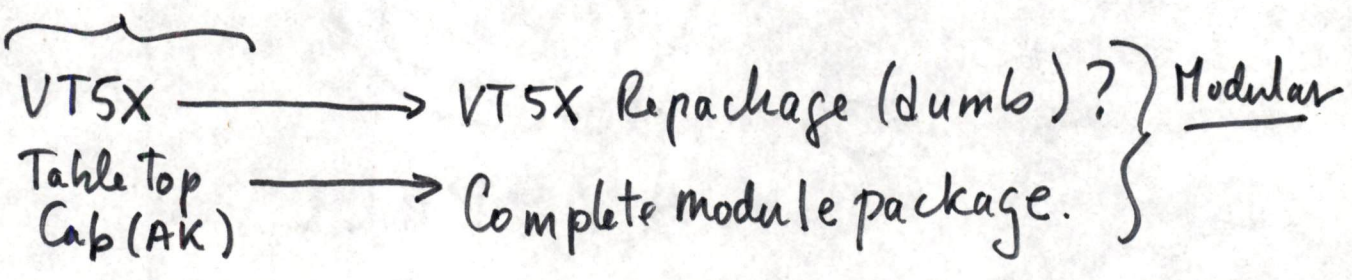 VT5X → VT5X Repackage (dumb)? } Modular
Table Top → Complete module package.
Cab (AK)